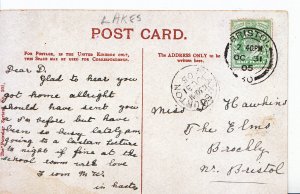 LAKES
POST CARD.
FOR POSTAGE, IN THE UNITED KINGDOM ONLY, THIS SPACE MAY BE USED FOR CORRESPONDENCE.
THE ADDRESS ONLY TO BE WRITTEN HERE.
BRISTOL
2.40PM
OC 31
05
Dear D.
Glad to hear you
got home allright
should have sent you
before but have been
so busy lately am
going to a Lantern Lecture
to night if fine at the
school room with love
from
in haste
Miss Hawkins
The Elms
Brockly
Nr. Bristol